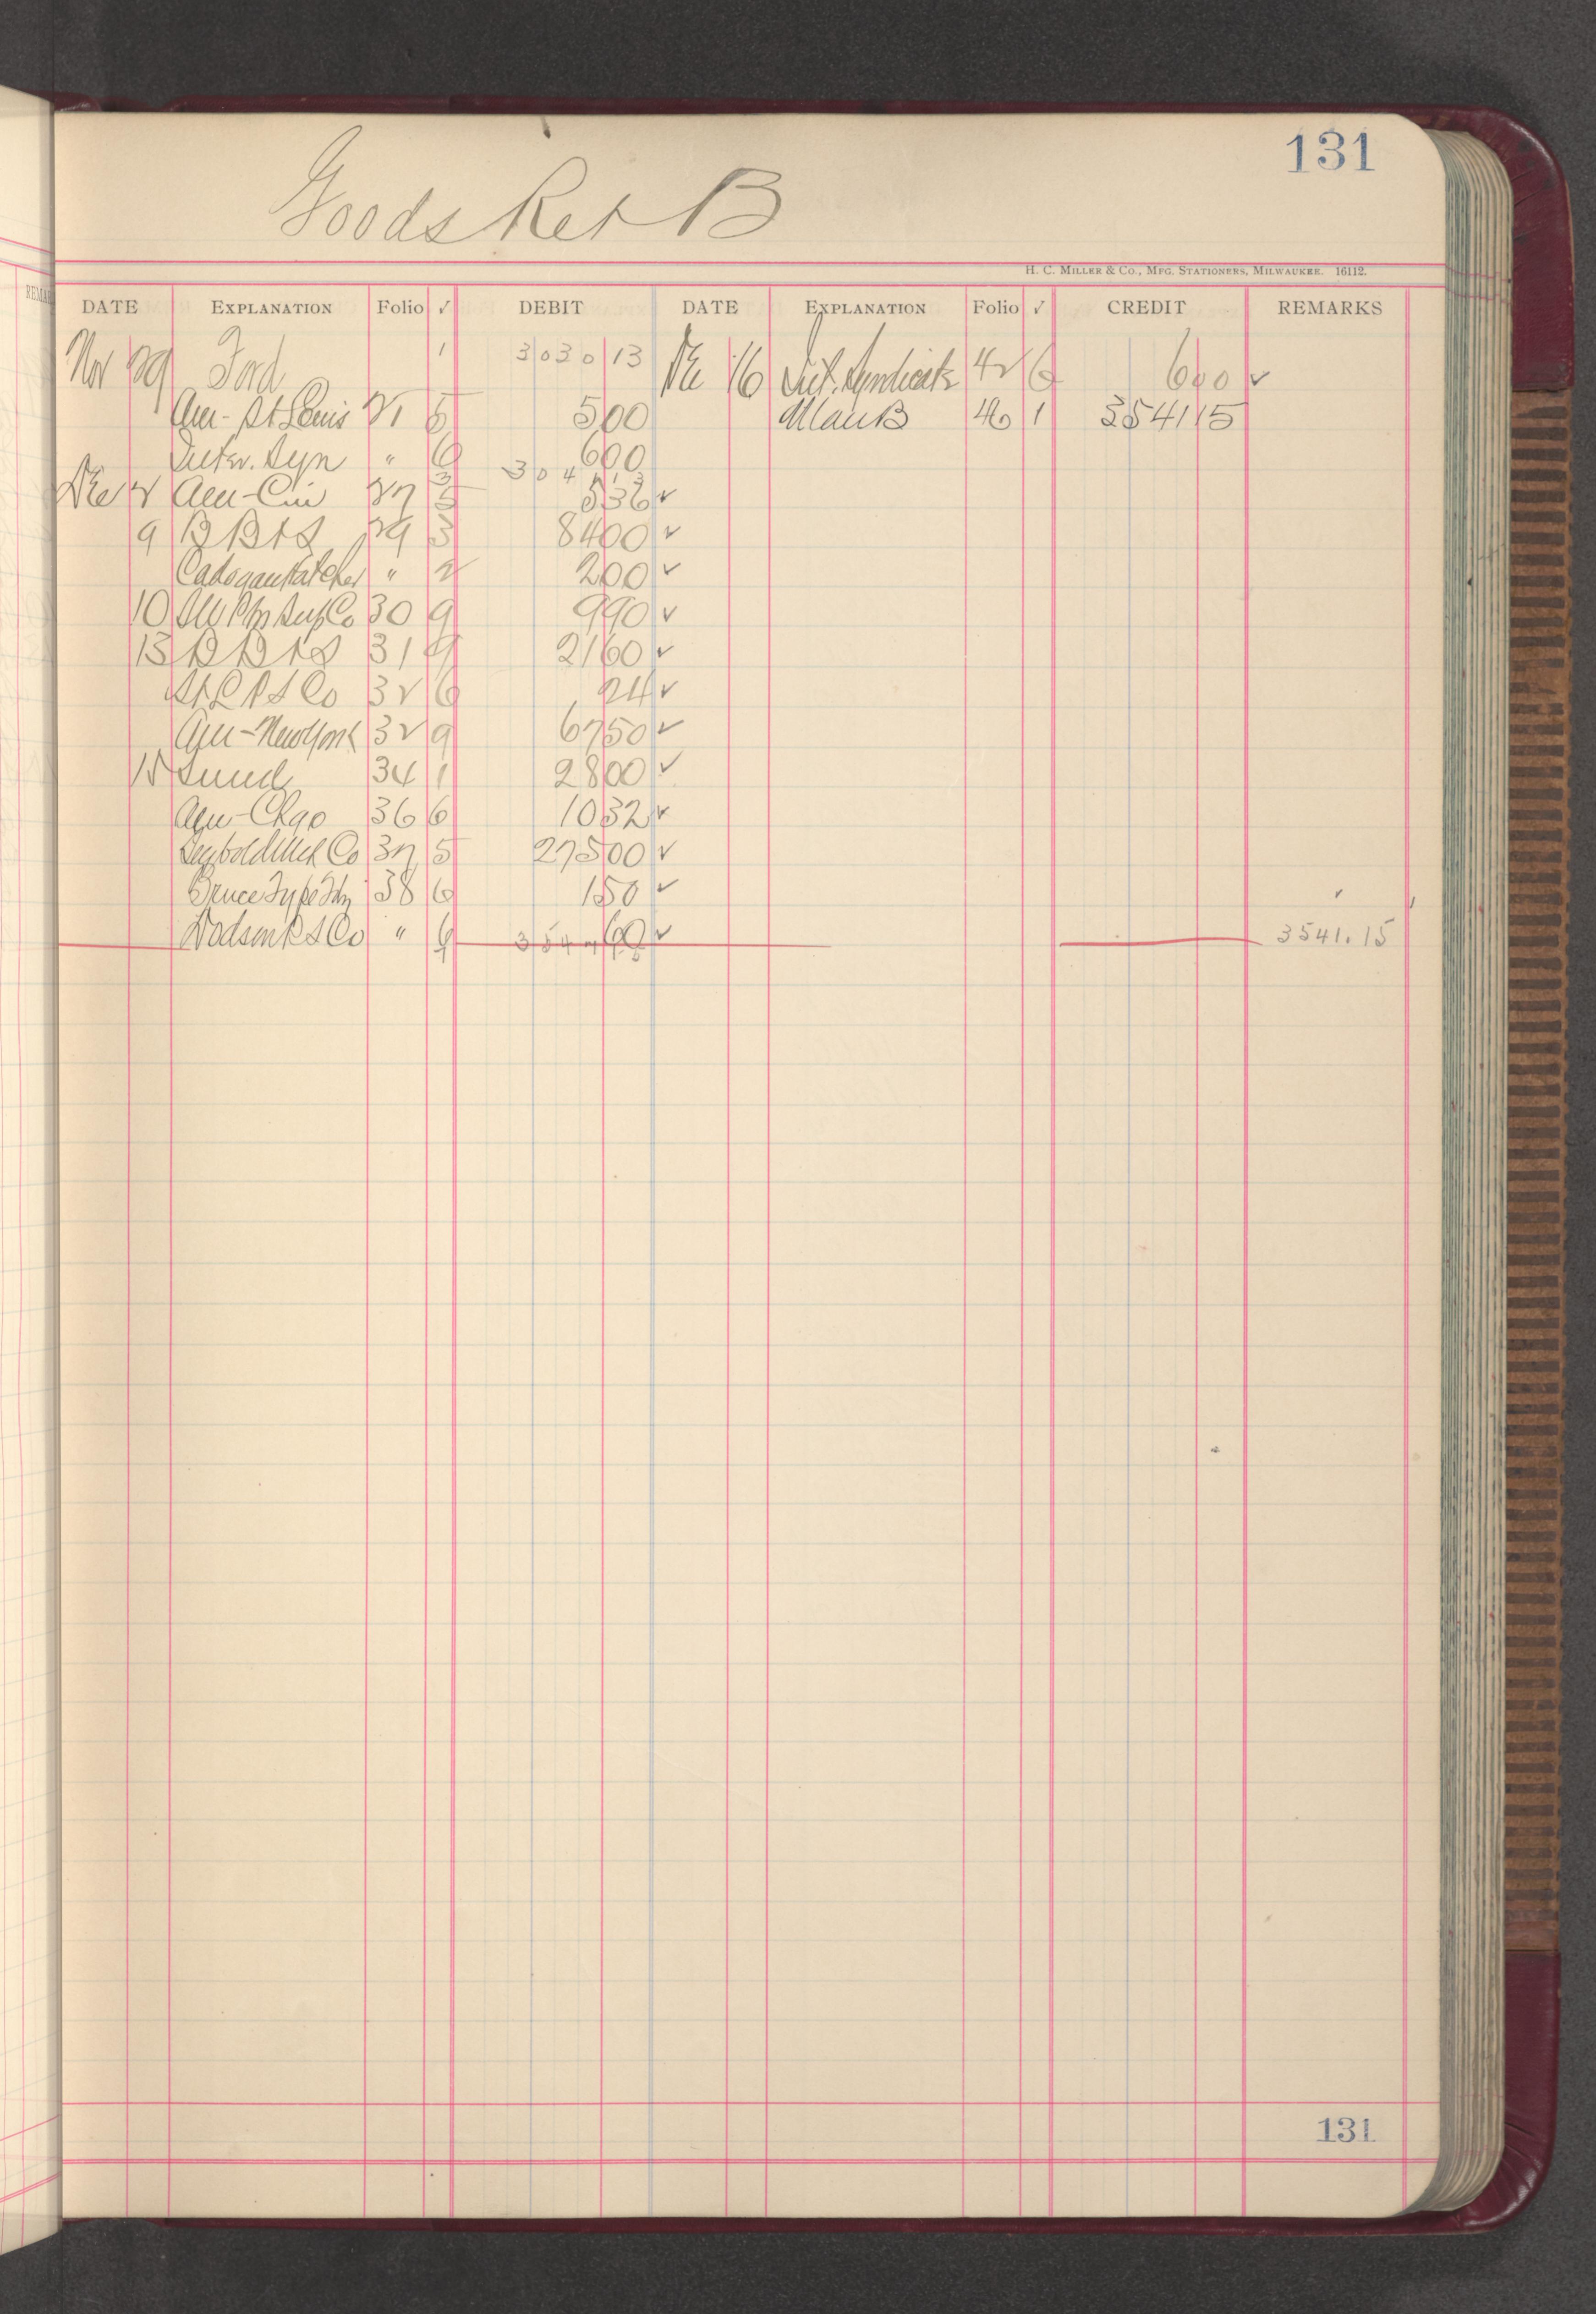 131
Goods Ret B
H. C. MILLER & CO., MFG. STATIONERS, MILWAUKEE. 16112.
DATE EXPLANATION Folio ✓ DEBIT DATE EXPLANATION Folio ✓ CREDIT REMARKS
Nov 29 Ford 1 3030 13 Dec 16 Vict. Syndicate 42 6 600 ✓
Am - St Louis 21 5 500 Manu B 40 1 354115
Syn " 6 600
304
Dec 2 Am - Cin 27 5 536 ✓
9 B B & S 29 3 8400 ✓
Cadogan Hatcher " 2 200 ✓
10 Co 30 9 990 ✓
13 B B & S 31 4 2160 ✓
Co 32 6 24 ✓
Am - New York 32 9 6750 ✓
15 34 1 2800 ✓
Am - Chgo 36 6 1032 ✓
Co 37 5 27500 ✓
Bruce Type Fdy 38 6 150 ✓
Co " 6 60 ✓ 3541.15
131